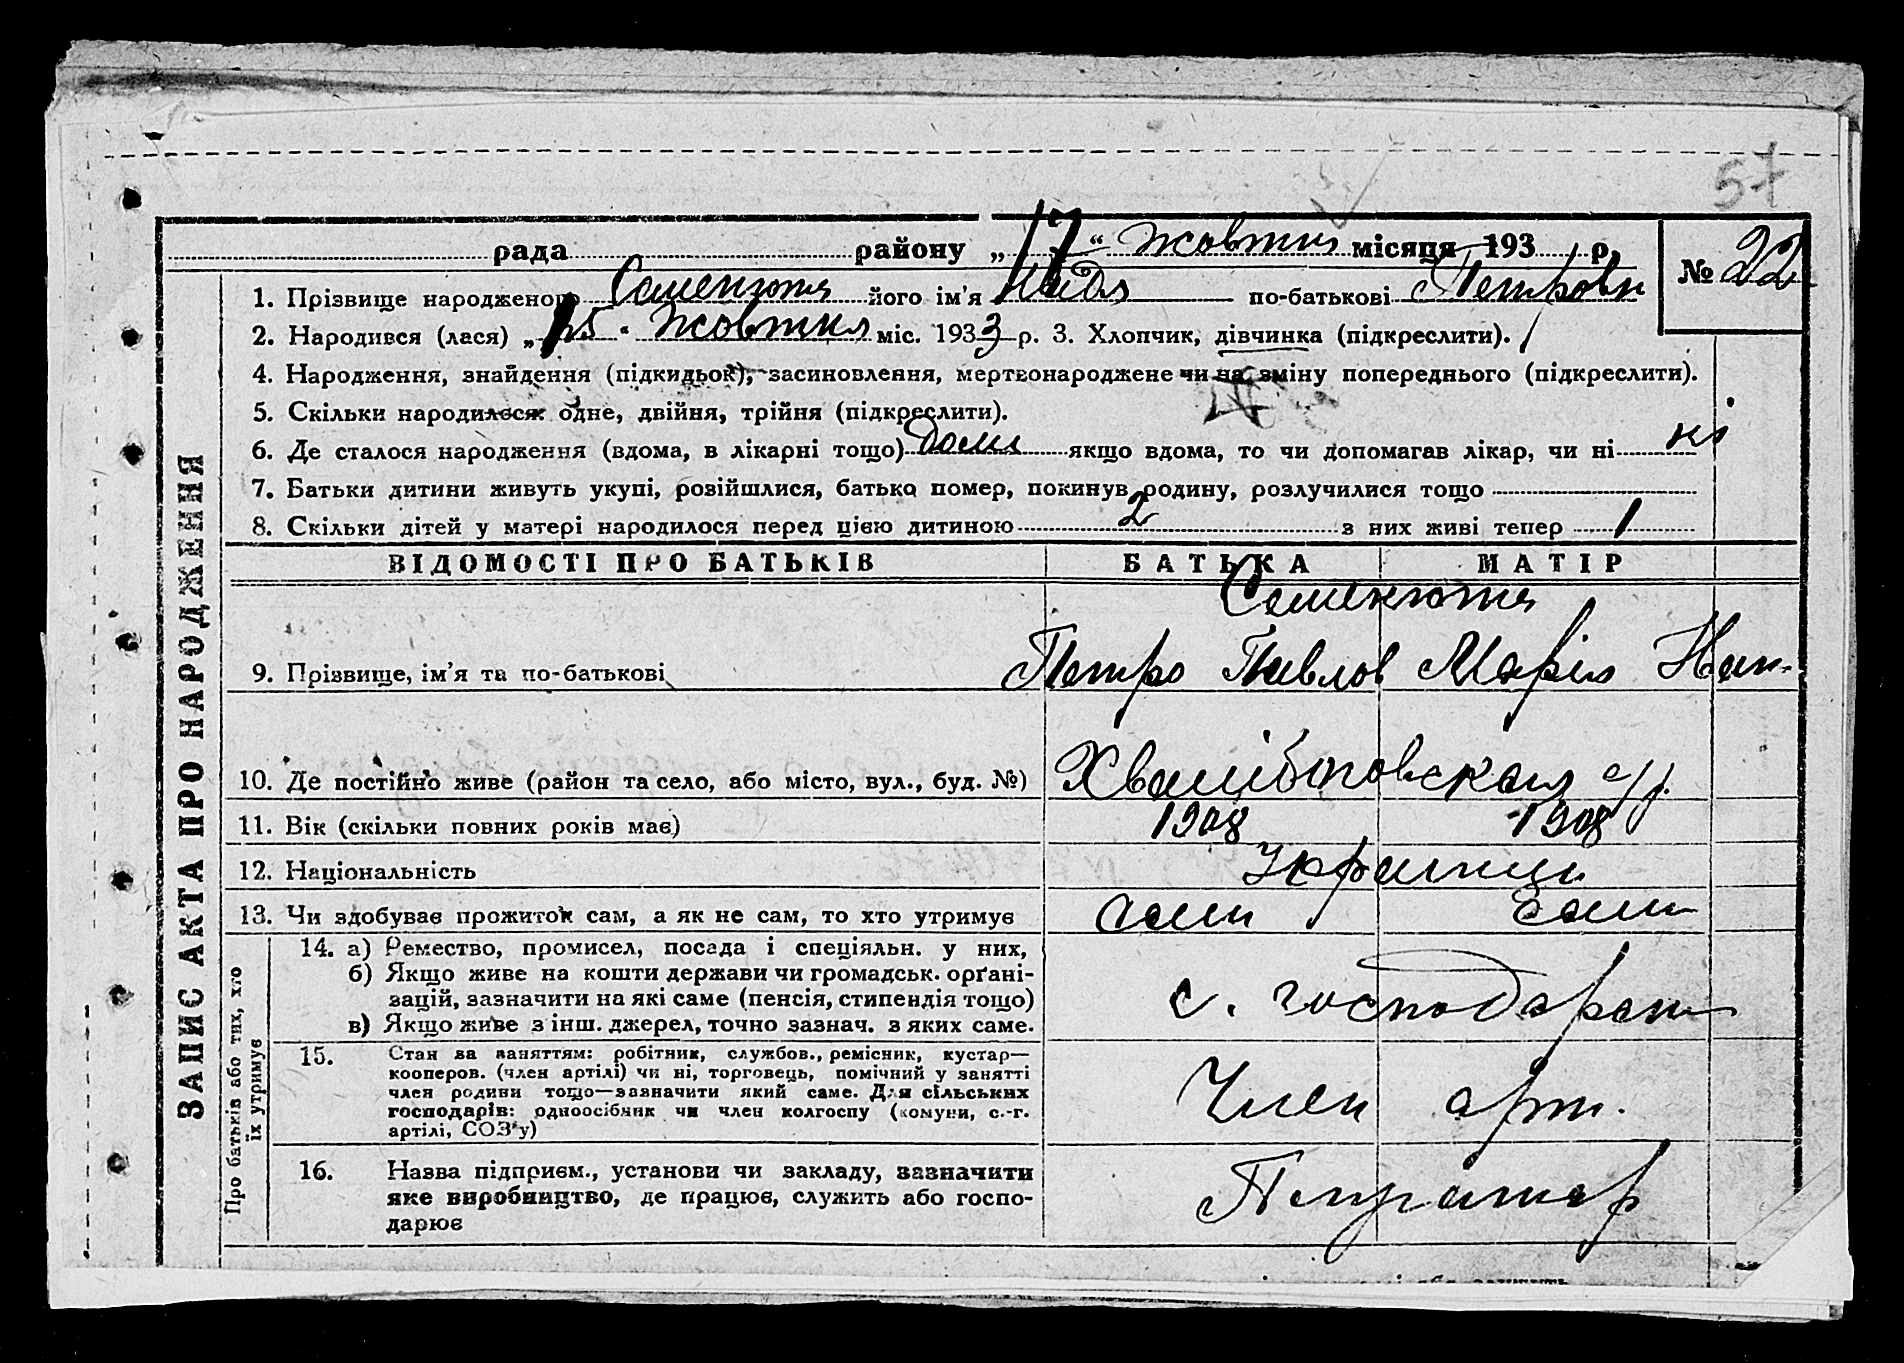 57
рада района „17“ жовтня місяця 193 р.
№ 22
1. Прізвище народженого Семенюта його ім'я Надя по-батькові Петровн
2. Народився (лася) „15“ жовтня міс. 1933 р. 3. Хлопчик, дівчинка (підкреслити).
4. Народження, знайдення (підкидьок), засиновлення, мертвонароджене чи на зміну попереднього (підкреслити).
5. Скільки народилося: одне, двійня, трійня (підкреслити).
6. Де сталося народження (вдома, в лікарні тощо) дома якщо вдома, то чи допомагав лікар, чи ні ні
7. Батьки дитини живуть укупі, розійшлися, батько помер, покинув родину, розлучилися тощо
8. Скільки дітей у матері народилося перед цією дитиною 2 з них живі тепер 1
ЗАПИС АКТА ПРО НАРОДЖЕННЯ
ВІДОМОСТІ ПРО БАТЬКІВ БАТЬКА МАТІР
Семенюта
9. Прізвище, ім'я та по-батькові Петро Павлов Марія
10. Де постійно живе (район та село, або місто, вул., буд. №) с/р.
11. Вік (скільки повних років має) 1908 1908
12. Національність Українці
13. Чи здобуває прожиток сам, а як не сам, то хто утримує сами сами
Про батьків або тих, хто
їх утримує
14. а) Ремество, промисел, посада і спеціяльн. у них,
б) Якщо живе на кошти держави чи громадськ. орґані-
зацій, зазначити на які саме (пенсія, стипендія тощо)
в) Якщо живе з інш. джерел, точно зазнач. з яких саме.
с. господарам
15. Стан за заняттям: робітник, службов., ремісник, кустар—
кооперов. (член артілі) чи ні, торговець, помічний у занятті
член родини тощо—зазначити який саме. Для сільських
господарів: одноосібник чи член колгоспу (комуни, с.-г.
артілі, СОЗ'у)
Член арт.
16. Назва підприєм., установи чи закладу, зазначити
яке виробництво, де працює, служить або госпо-
дарює